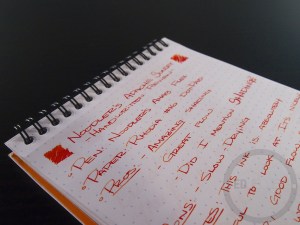 NOODLER'S APACHE SUNSET
- HANDWRITTEN REVIEW -
"PEN: NOODLERS AHAB FLEX
"PAPER: RHODIA DOTPAD
"PROS: - AMAZING SHADING
- GREAT FLOW
- DID I MENTION SHADING?
- SLOW-DRYING
THIS INK IS ABSOLUTELY
TO LOOK AT. ITS
GOOD FLOW